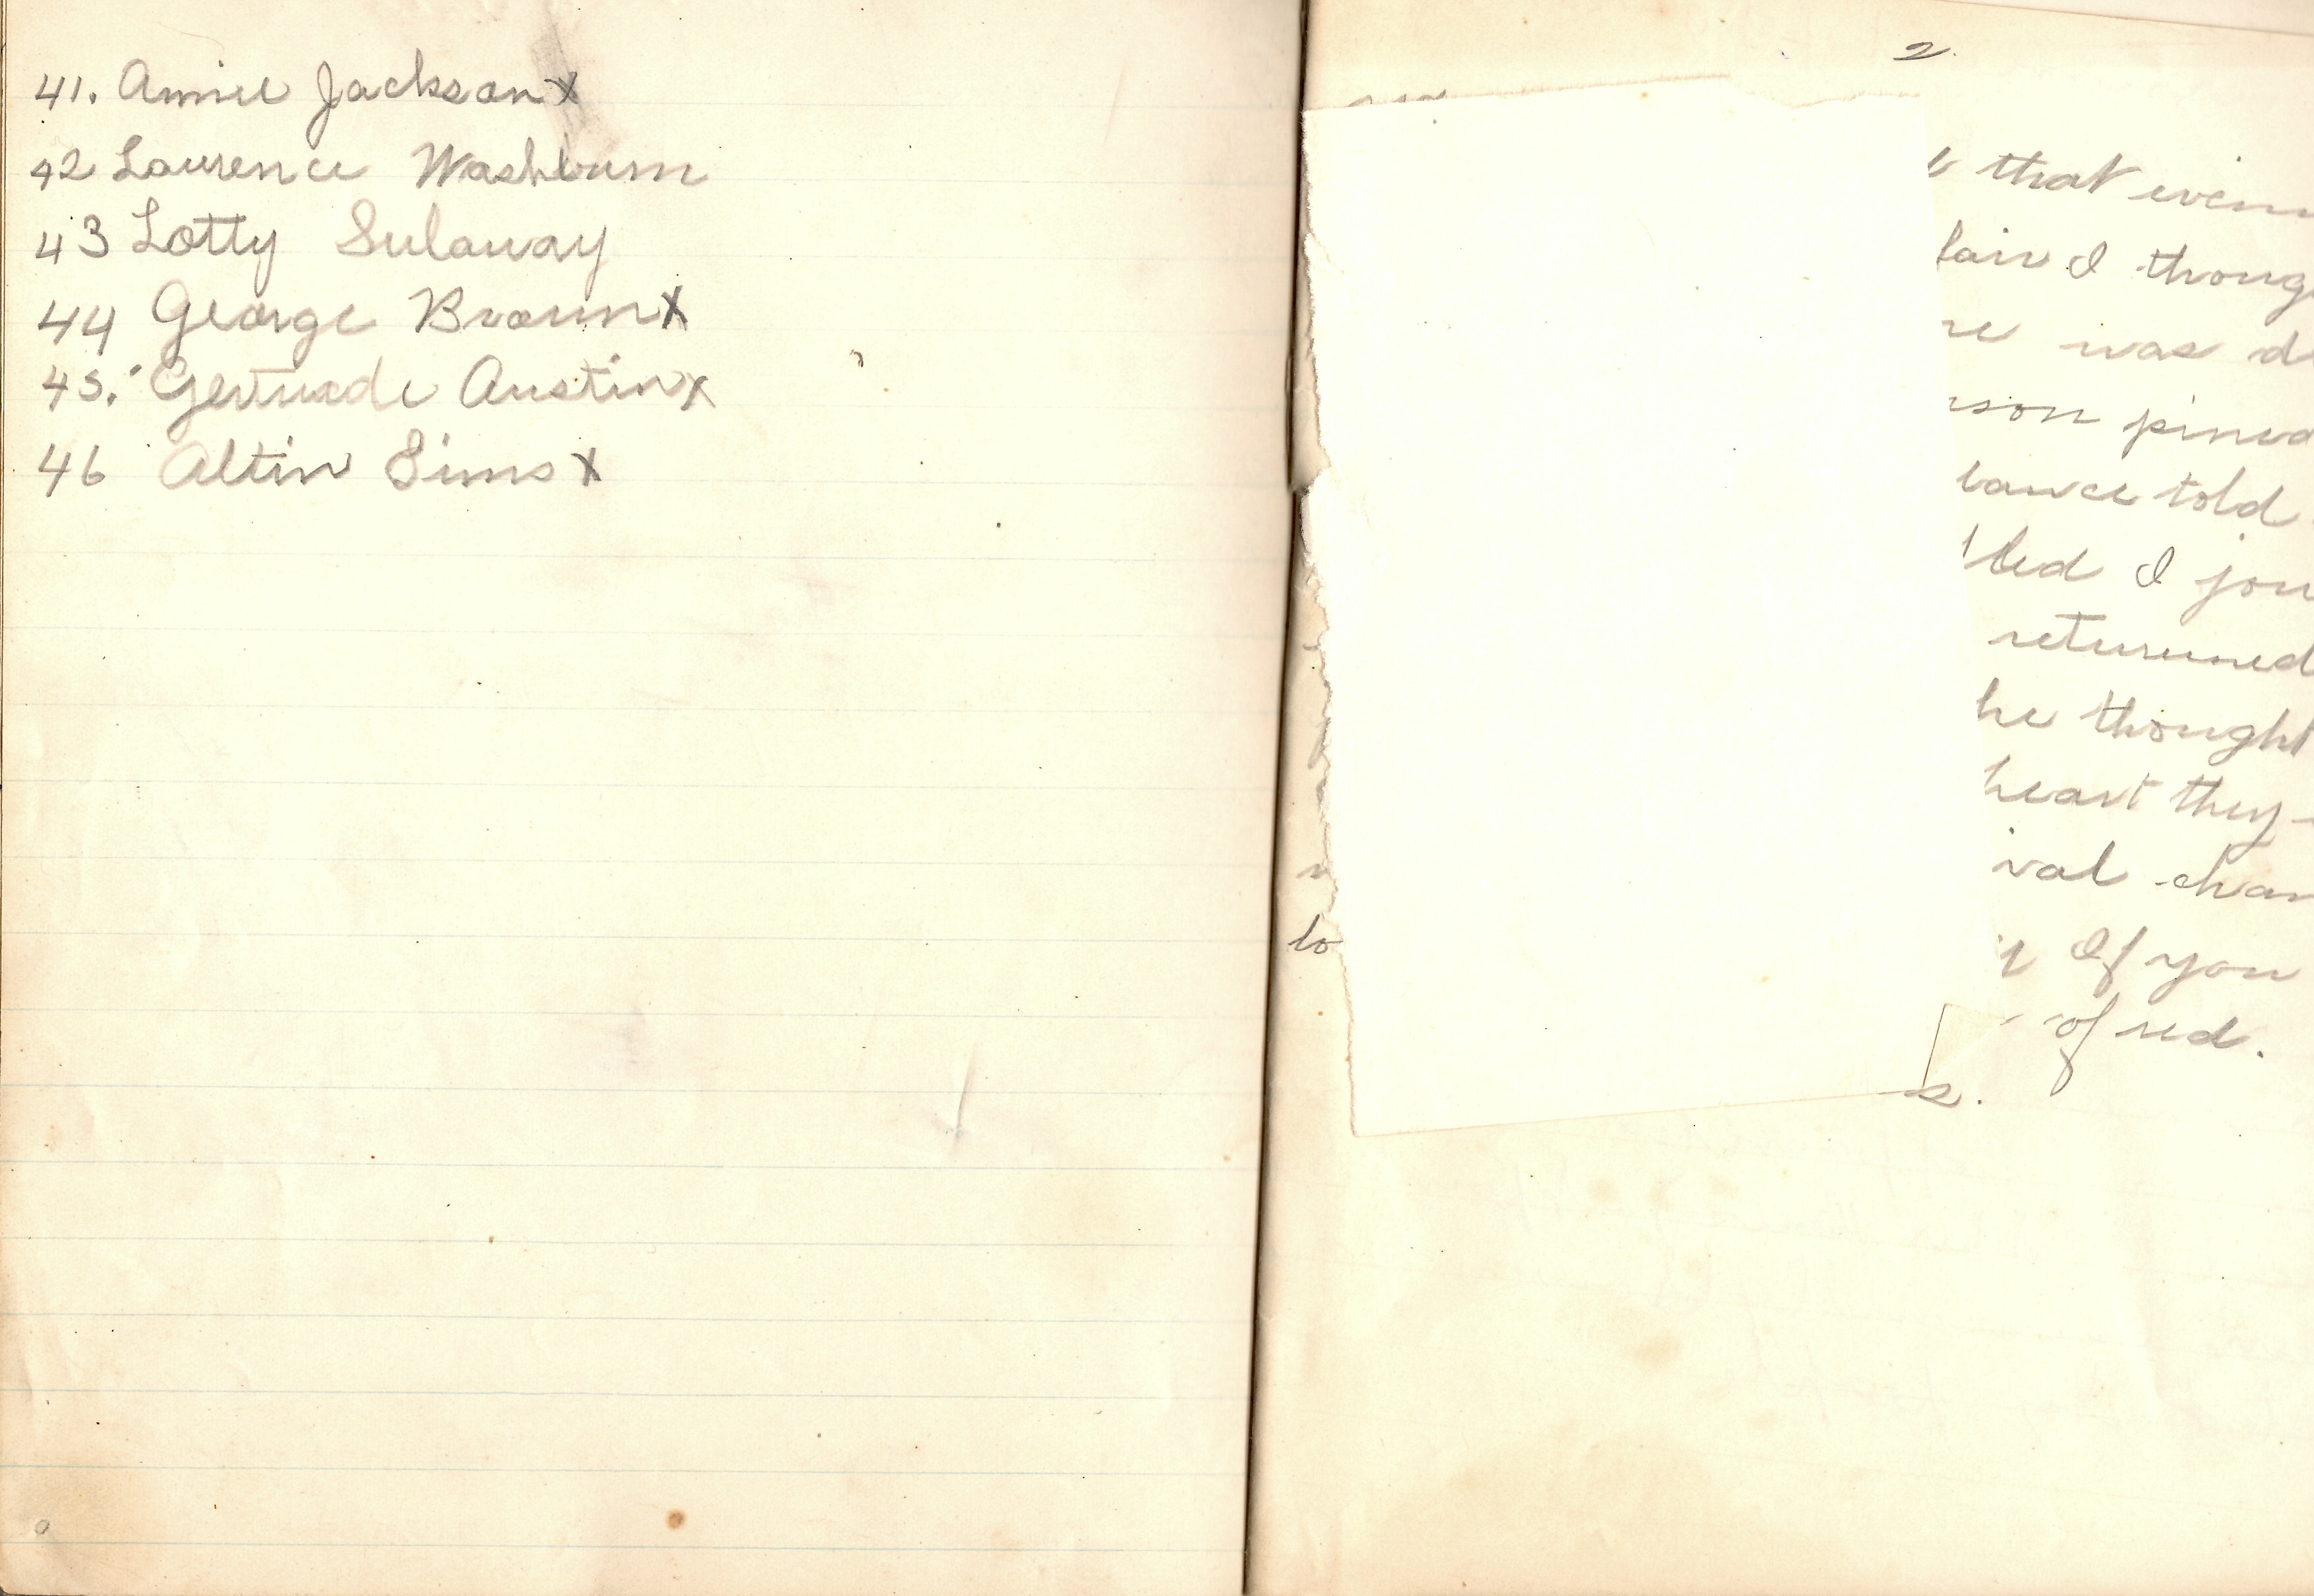 41. Annie Jackson x
42 Laurence Washburn
43 Lotty Sulaway
44 George Brown x
45. Gertrude Austin x
46 Altin Sims x
2
that even
fair I thoug
re was d
rson pined
lance told
led I jou
returuned
he thought
heart they
ival chan
If you
of red.
s.
lo